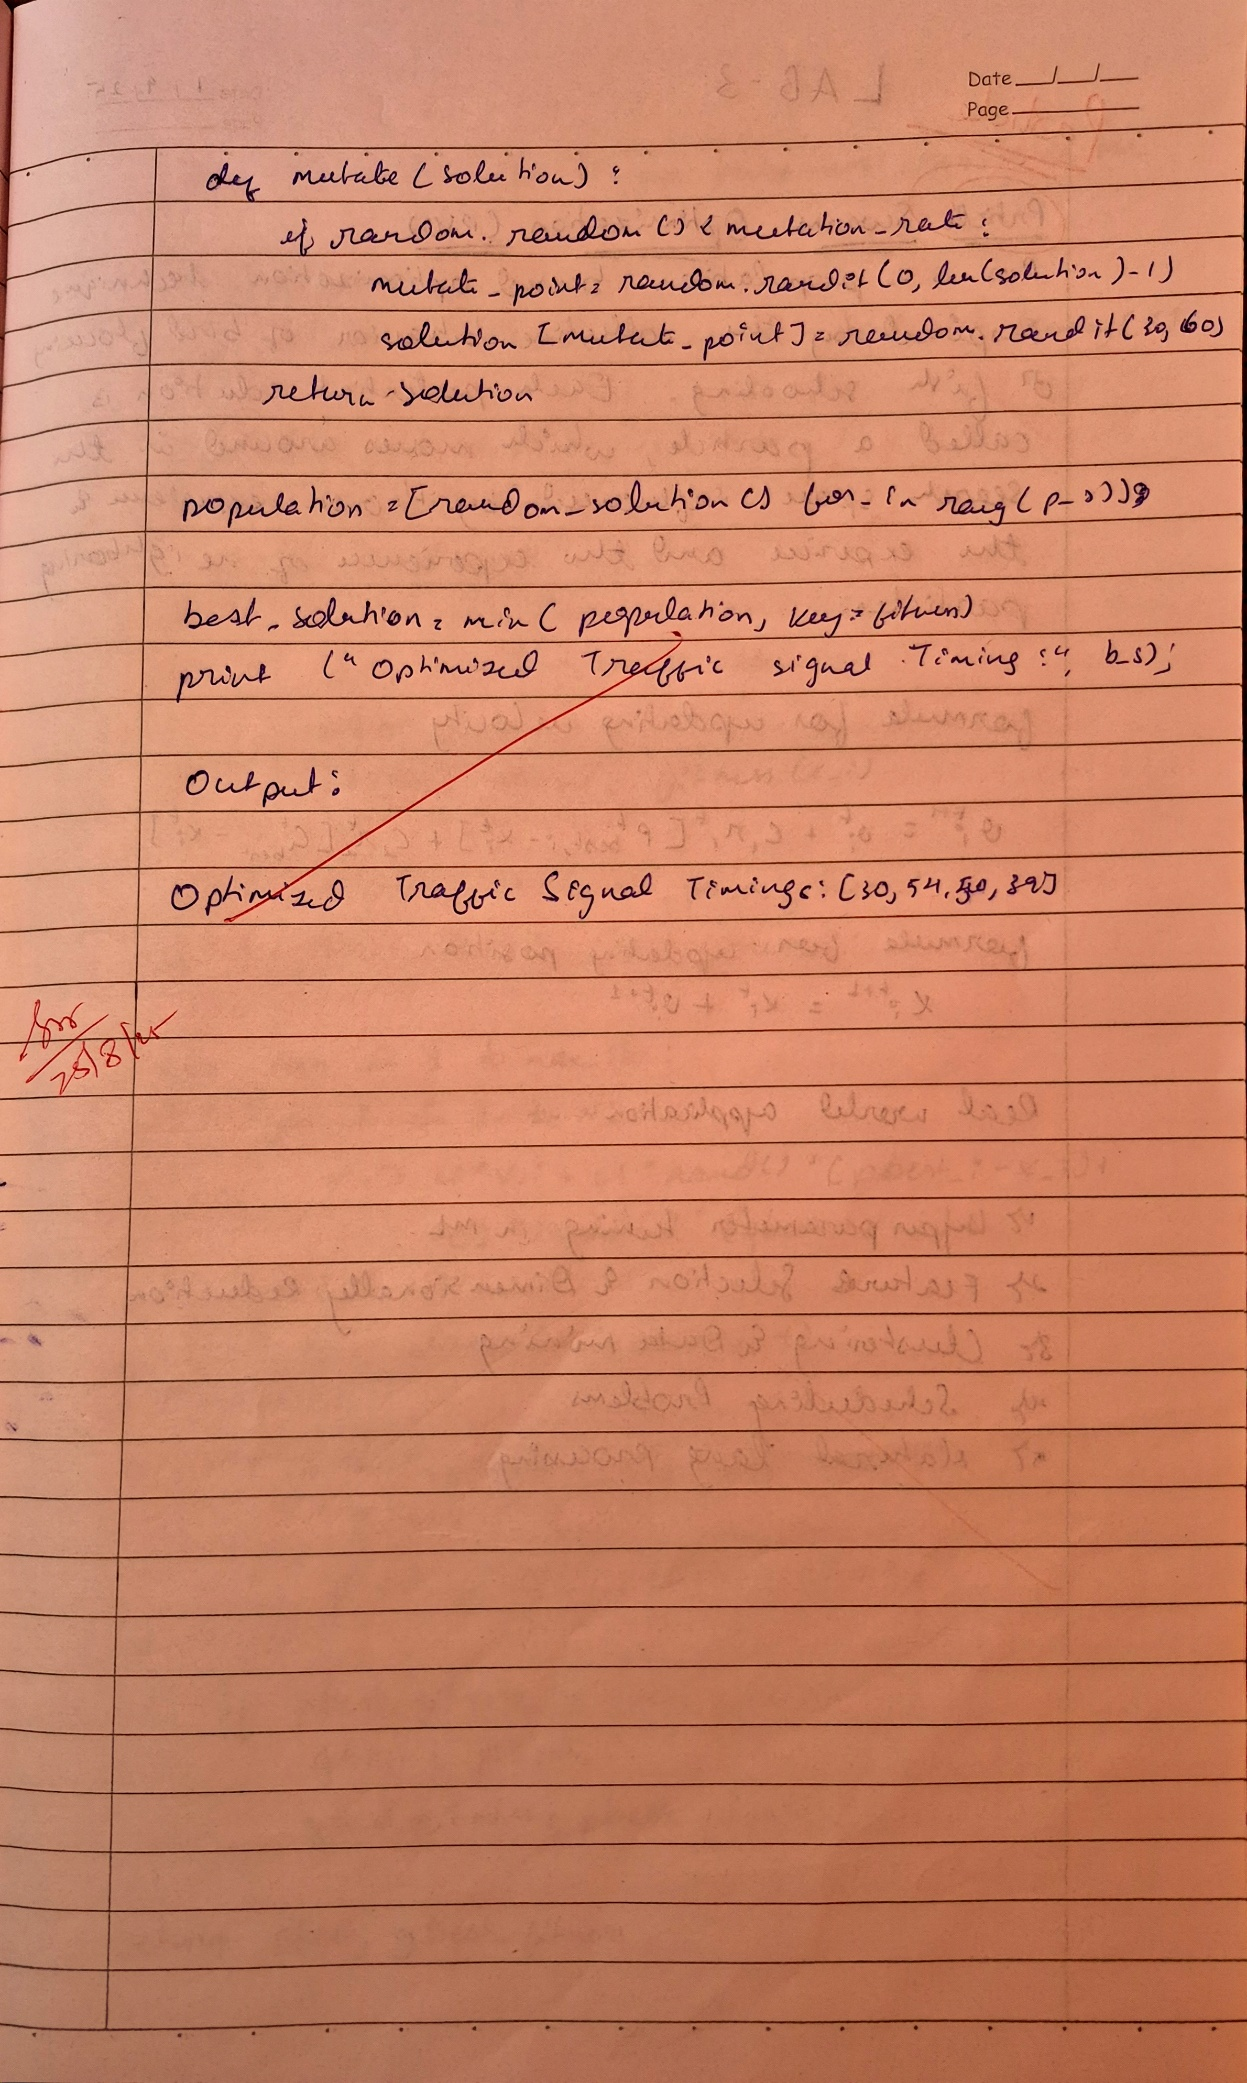 Date
Page
def mutate (solution) :
if random. random () < mutation_rate :
mutate_point = random.randit (0, len(solution)-1)
solution [mutate_point] = random.randit (30, 60)
return solution
population = [random_solution () for _ in rang (p_s)]
best_solution = min ( population, key = fitness)
print (" Optimized Traffic signal Timing :", b_s);
Output :
Optimized Traffic Signal Timings : [30, 54, 50, 39]
25/8/25